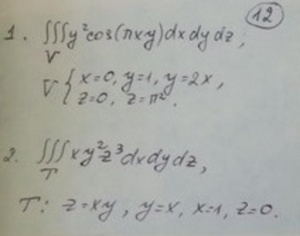 12
1. ∭y²cos(πxy)dxdydz;
V
V { x=0, y=1, y=2x,
z=0, z=π².
2. ∭xy²z³dxdydz,
T
T: z=xy, y=x, x=1, z=0.